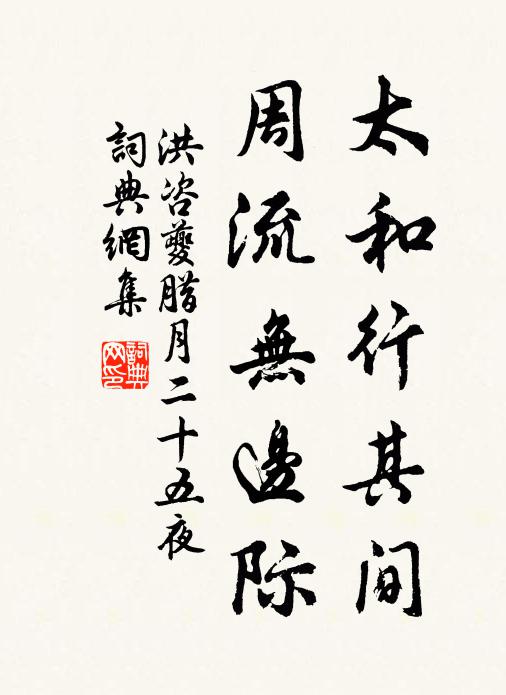 太和行其間
周流無邊际
洪咨夔腊月二十五夜
詞典網集
詞典網印